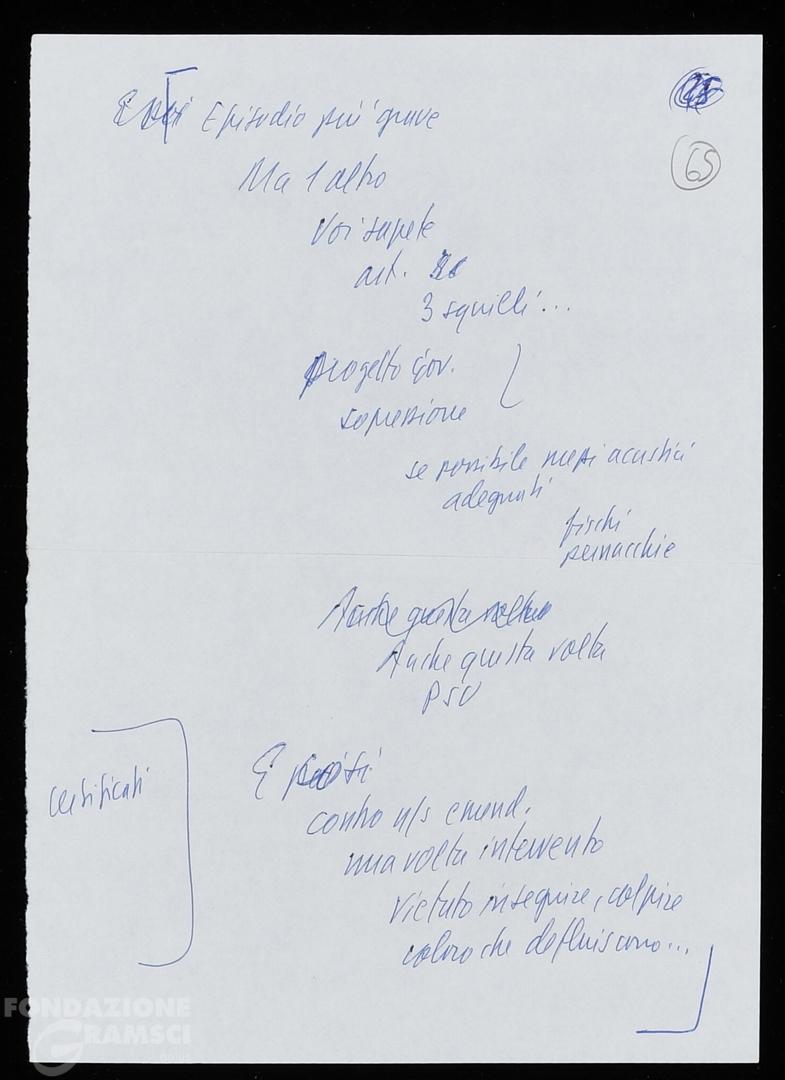 65
Episodio più grave
Ma l'altro
Voi sapete
art.
3 squilli...
progetto Gov.
soppressione
se possibile mezzi acustici
adeguati
fischi
pernacchie
Anche questa volta
Anche questa volta
PSU
certificati
E
contro n/s emend.
una volta intervento
vietato inseguire, colpire
coloro che defluiscono...
FONDAZIONE
GRAMSCI